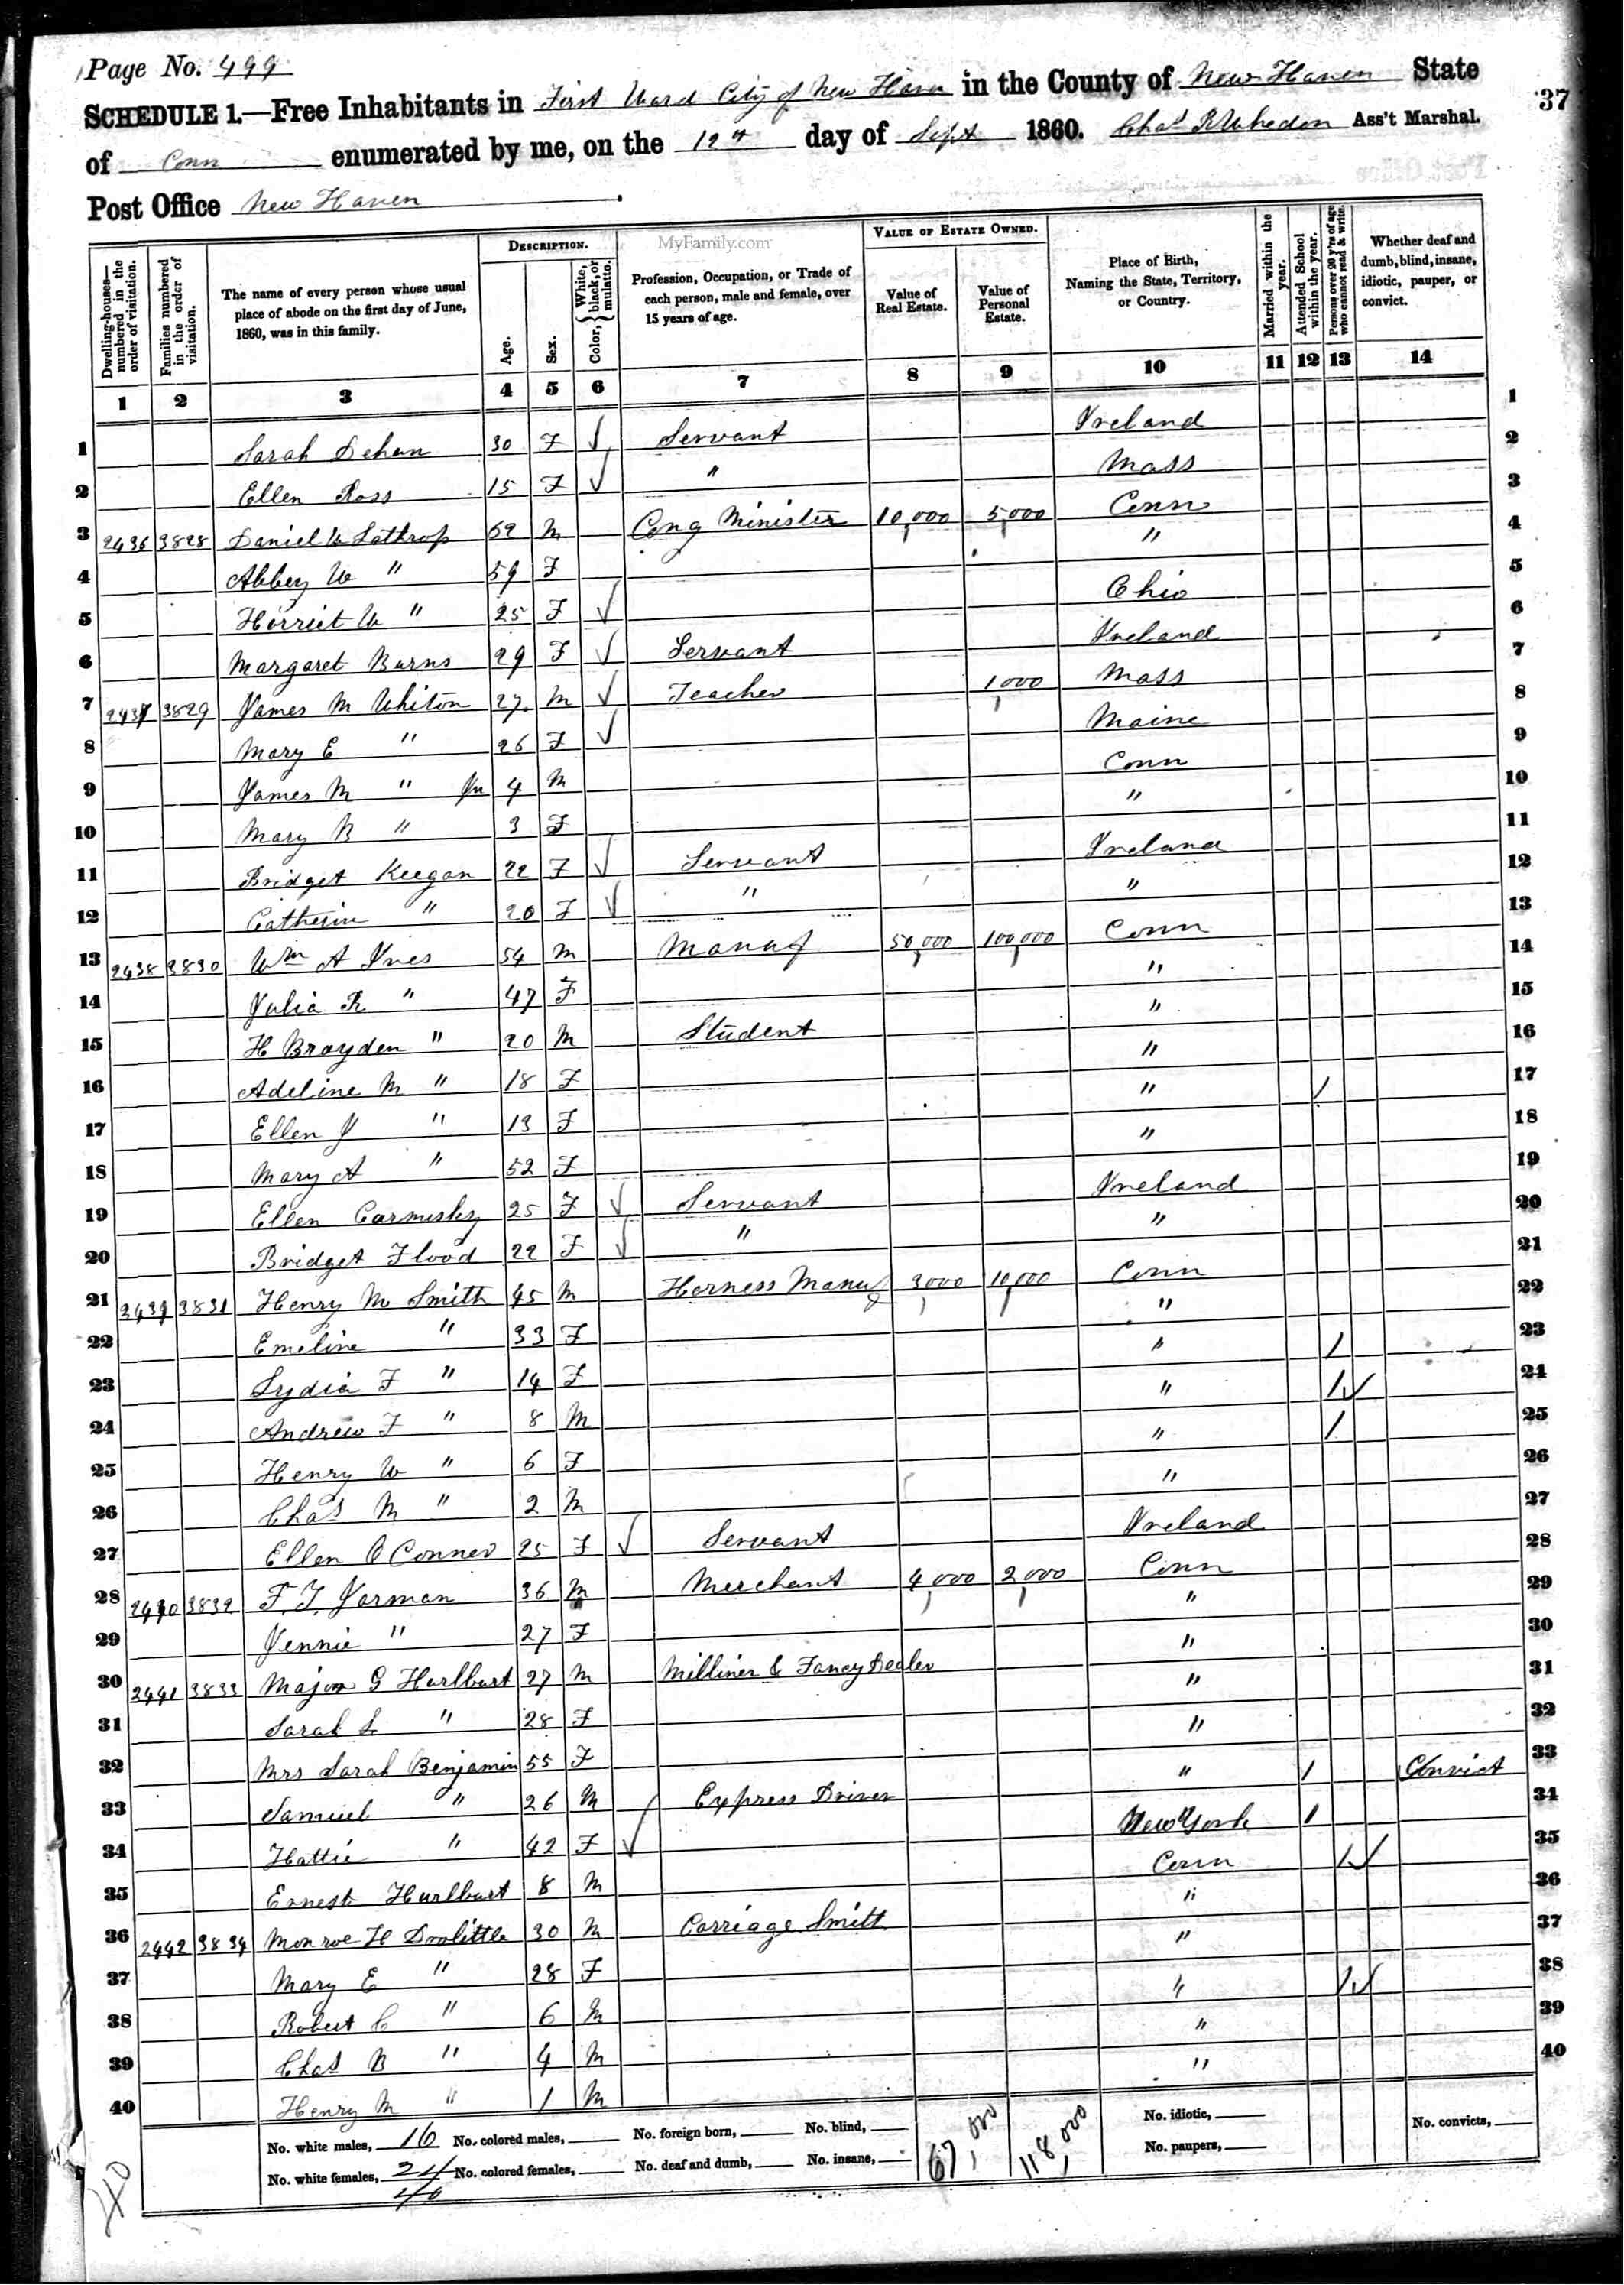 Page No. 499
SCHEDULE 1.—Free Inhabitants in First Ward City of New Haven in the County of New Haven State
37
of Conn enumerated by me, on the 12th day of Sept 1860. Chas R Whedon Ass't Marshal.
Post Office New Haven
MyFamily.com
Dwelling-houses—numbered in the order of visitation.
Families numbered in the order of visitation.
The name of every person whose usual place of abode on the first day of June, 1860, was in this family.
DESCRIPTION.
Age.
Sex.
Color, White, black, or mulatto.
Profession, Occupation, or Trade of each person, male and female, over 15 years of age.
VALUE OF ESTATE OWNED.
Value of Real Estate.
Value of Personal Estate.
Place of Birth, Naming the State, Territory, or Country.
Married within the year.
Attended School within the year.
Persons over 20 y'rs of age who cannot read & write.
Whether deaf and dumb, blind, insane, idiotic, pauper, or convict.
1 2 3 4 5 6 7 8 9 10 11 12 13 14
1 Sarah Dehan 30 F Servant Ireland 1
2 Ellen Ross 15 F " Mass 2
3 2436 3828 Daniel W Lathrop 62 M Cong Minister 10,000 5,000 Conn 3
4 Abbey W " 59 F " 4
5 Harriet W " 25 F Ohio 5
6 Margaret Burns 29 F Servant Ireland 6
7 2437 3829 James M Whiton 27 M Teacher 1,000 Mass 7
8 Mary E " 26 F Maine 8
9 James M " Jn 4 M Conn 9
10 Mary B " 3 F " 10
11 Bridget Keegan 22 F Servant Ireland 11
12 Catherin " 20 F " " 12
13 2438 3830 Wm A Ives 54 M Manuf 50,000 100,000 Conn 13
14 Julia R " 47 F " 14
15 H Brayden " 20 M Student " 15
16 Adeline M " 18 F " 16
17 Ellen J " 13 F " / 17
18 Mary A " 52 F " 18
19 Ellen 25 F Servant Ireland 19
20 Bridget Flood 22 F " " 20
21 2439 3831 Henry M Smith 45 M Harness Manuf 3,000 10,000 Conn 21
22 Emeline " 33 F " 22
23 Lydia F " 14 F " / 23
24 Andrew F " 8 M " / 24
25 Henry W " 6 F " / 25
26 Chas M " 2 M " 26
27 Ellen O Conner 25 F Servant Ireland 27
28 2440 3832 F. T. Jarman 36 M Merchant 4,000 2,000 Conn 28
29 Jennie " 27 F " 29
30 2441 3833 Major G Hurlburt 27 M Milliner & Fancy Dealer " 30
31 Sarah L " 28 F " 31
32 Mrs Sarah Benjamin 55 F " 32
33 Samuel " 26 M Express Driver " / Convict 33
34 Hattie " 42 F New York / 34
35 Ernest Hurlburt 8 M Conn / 35
36 2442 3834 Monroe H Doolittle 30 M Carriage Smith " 36
37 Mary E " 28 F " 37
38 Robert C " 6 M " / 38
39 Chas B " 4 M " 39
40 Henry M " 1 M " 40
No. white males, 16 No. colored males, No. foreign born, No. blind, 67,000 118,000 No. idiotic, No. convicts,
No. white females, 24 No. colored females, No. deaf and dumb, No. insane, No. paupers,
40
40